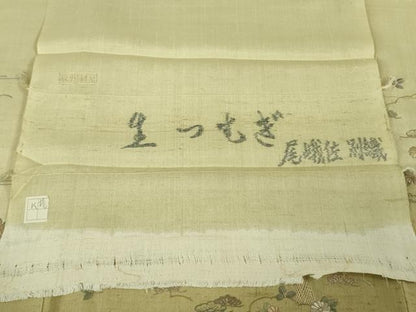 生つむぎ
尾峨佐 別織